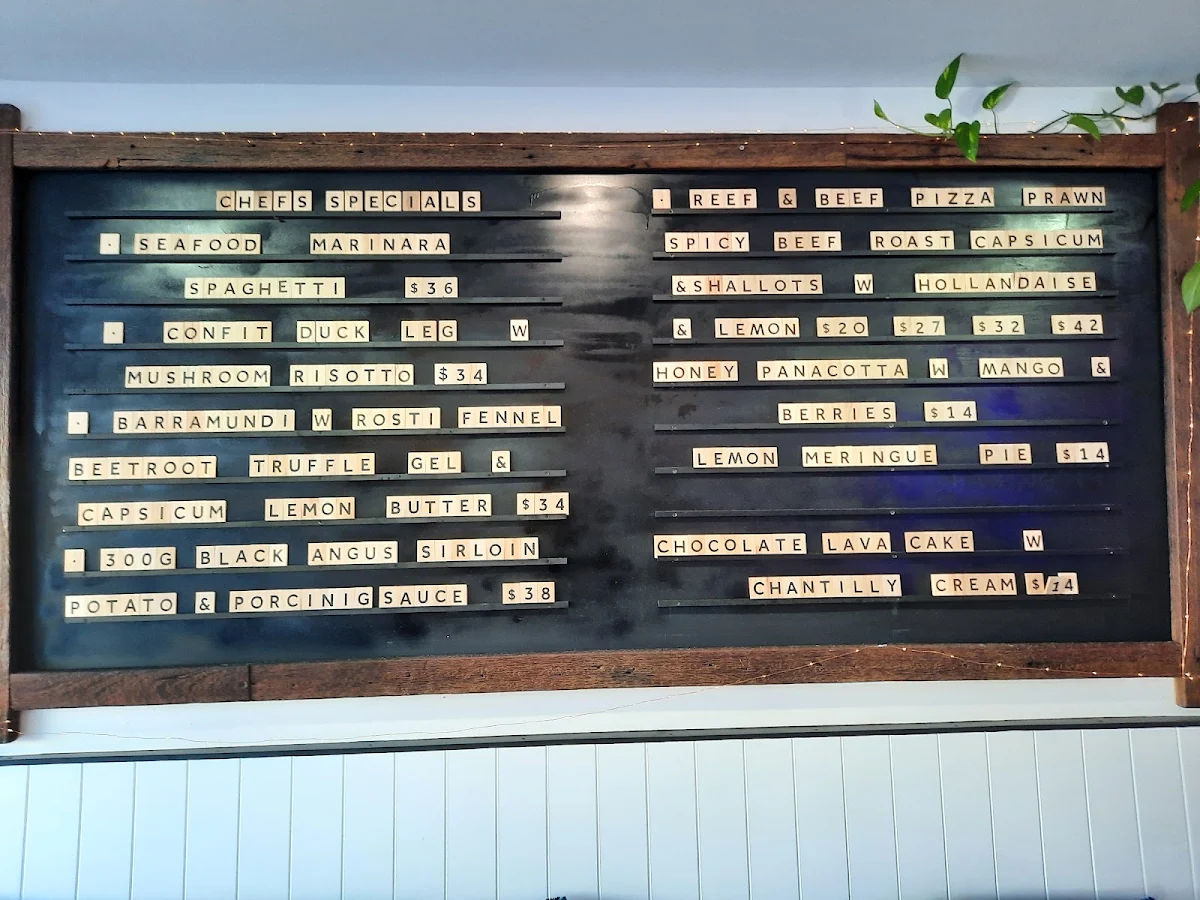 CHEFS SPECIALS
· SEAFOOD MARINARA
SPAGHETTI $36
· CONFIT DUCK LEG W
MUSHROOM RISOTTO $34
· BARRAMUNDI W ROSTI FENNEL
BEETROOT TRUFFLE GEL &
CAPSICUM LEMON BUTTER $34
· 300G BLACK ANGUS SIRLOIN
POTATO & PORCINIG SAUCE $38
· REEF & BEEF PIZZA PRAWN
SPICY BEEF ROAST CAPSICUM
&SHALLOTS W HOLLANDAISE
& LEMON $20 $27 $32 $42
HONEY PANACOTTA W MANGO &
BERRIES $14
LEMON MERINGUE PIE $14
CHOCOLATE LAVA CAKE W
CHANTILLY CREAM $14